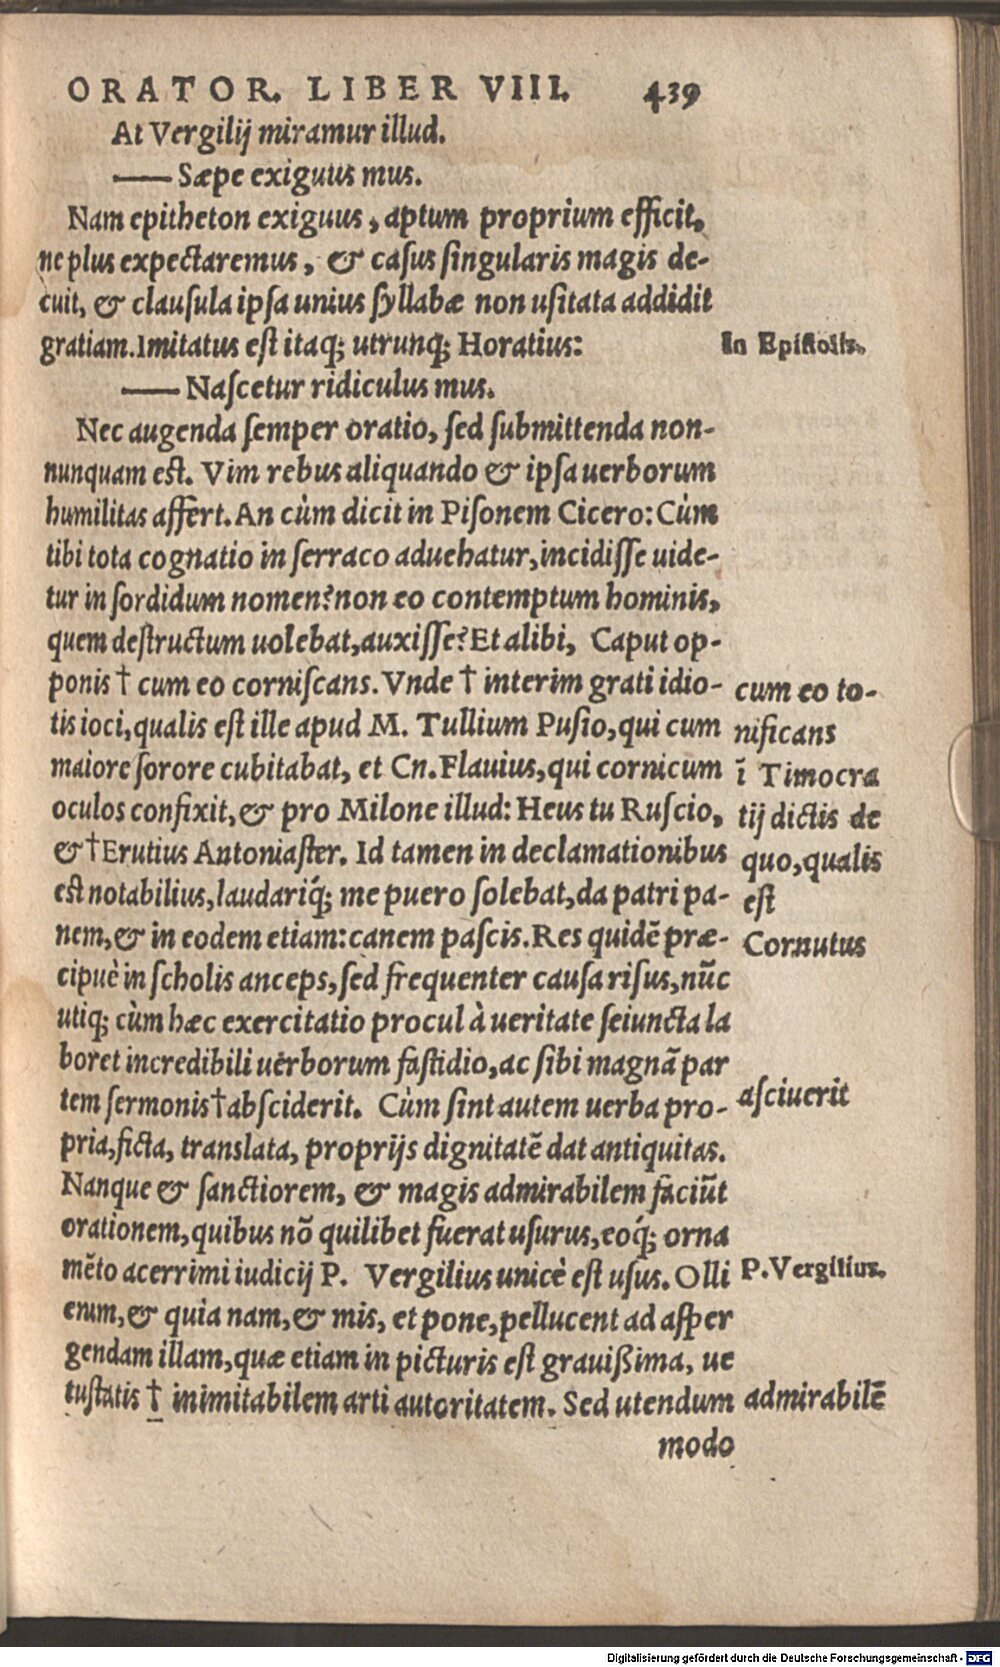 ORATOR. LIBER VIII. 439
At Vergilij miramur illud.
—— Sæpe exiguus mus.
Nam epitheton exiguus, aptum proprium efficit,
ne plus expectaremus, & casus singularis magis de-
cuit, & clausula ipsa unius syllabæ non usitata addidit
gratiam. Imitatus est itaq; utrunq; Horatius:
In Epistolis.
—— Nascetur ridiculus mus.
Nec augenda semper oratio, sed submittenda non-
nunquam est. Vim rebus aliquando & ipsa uerborum
humilitas affert. An cùm dicit in Pisonem Cicero: Cùm
tibi tota cognatio in serraco aduehatur, incidisse uide-
tur in sordidum nomen? non eo contemptum hominis,
quem destructum uolebat, auxisse? Et alibi, Caput op-
ponis † cum eo corniscans. Vnde † interim grati idio-
tis ioci, qualis est ille apud M. Tullium Pusio, qui cum
maiore sorore cubitabat, et Cn. Flauius, qui cornicum
oculos confixit, & pro Milone illud: Heus tu Ruscio,
& † Erutius Antoniaster. Id tamen in declamationibus
est notabilius, laudariq́; me puero solebat, da patri pa-
nem, & in eodem etiam: canem pascis. Res quidē præ-
cipuè in scholis anceps, sed frequenter causa risus, nūc
utiq; cùm hæc exercitatio procul à ueritate seiuncta la
boret incredibili uerborum fastidio, ac sibi magnā par
tem sermonis † absciderit. Cùm sint autem uerba pro-
pria, ficta, translata, proprijs dignitatē dat antiquitas.
Nanque & sanctiorem, & magis admirabilem faciūt
orationem, quibus nō quilibet fuerat usurus, eoq́; orna
mēto acerrimi iudicij P. Vergilius unicè est usus. Olli
enim, & quia nam, & mis, et pone, pellucent ad asper
gendam illam, quæ etiam in picturis est grauißima, ue
tustatis † inimitabilem arti autoritatem. Sed utendum
modo
cum eo to-
nificans
ī Timocra
tij dictis de
quo, qualis
est
Cornutus
asciuerit
P. Vergilius.
admirabilē
Digitalisierung gefördert durch die Deutsche Forschungsgemeinschaft - DFG